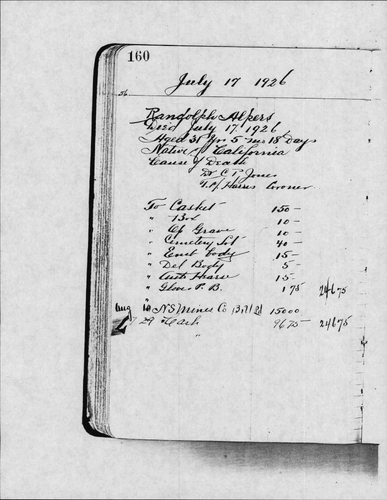 160
July 17 1926
56
Randolph Alpers
Died July 17, 1926
Aged 31 Yrs 5 ms 18 Days
Native of California
Cause of Death
Dr C P Jones
Harris Coroner
To Casket 150 —
" Box 10 —
" Op Grave 10 —
" Cemetery Lot 40 —
" Emb body 15 —
" Del Body 5 —
" Auto Hearse 15 —
" Gloves P. B. 1 75 246 75
Aug 10 N S Mines Co 150 00
Cash 96 75 246 75